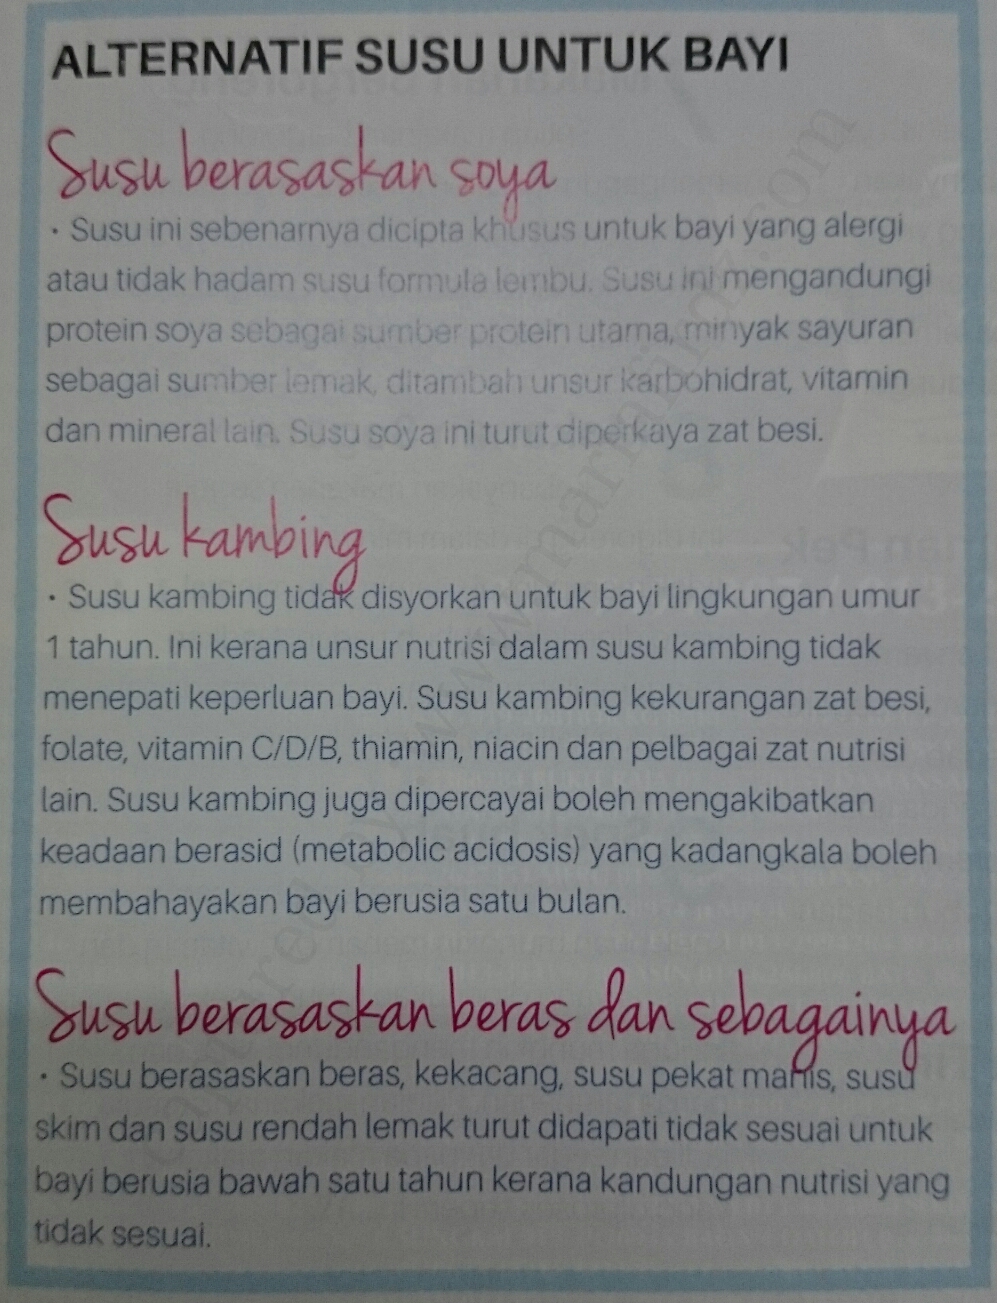 ALTERNATIF SUSU UNTUK BAYI
Susu berasaskan soya
· Susu ini sebenarnya dicipta khusus untuk bayi yang alergi
atau tidak hadam susu formula lembu. Susu ini mengandungi
protein soya sebagai sumber protein utama, minyak sayuran
sebagai sumber lemak, ditambah unsur karbohidrat, vitamin
dan mineral lain. Susu soya ini turut diperkaya zat besi.
Susu kambing
· Susu kambing tidak disyorkan untuk bayi lingkungan umur
1 tahun. Ini kerana unsur nutrisi dalam susu kambing tidak
menepati keperluan bayi. Susu kambing kekurangan zat besi,
folate, vitamin C/D/B, thiamin, niacin dan pelbagai zat nutrisi
lain. Susu kambing juga dipercayai boleh mengakibatkan
keadaan berasid (metabolic acidosis) yang kadangkala boleh
membahayakan bayi berusia satu bulan.
Susu berasaskan beras dan sebagainya
· Susu berasaskan beras, kekacang, susu pekat manis, susu
skim dan susu rendah lemak turut didapati tidak sesuai untuk
bayi berusia bawah satu tahun kerana kandungan nutrisi yang
tidak sesuai.